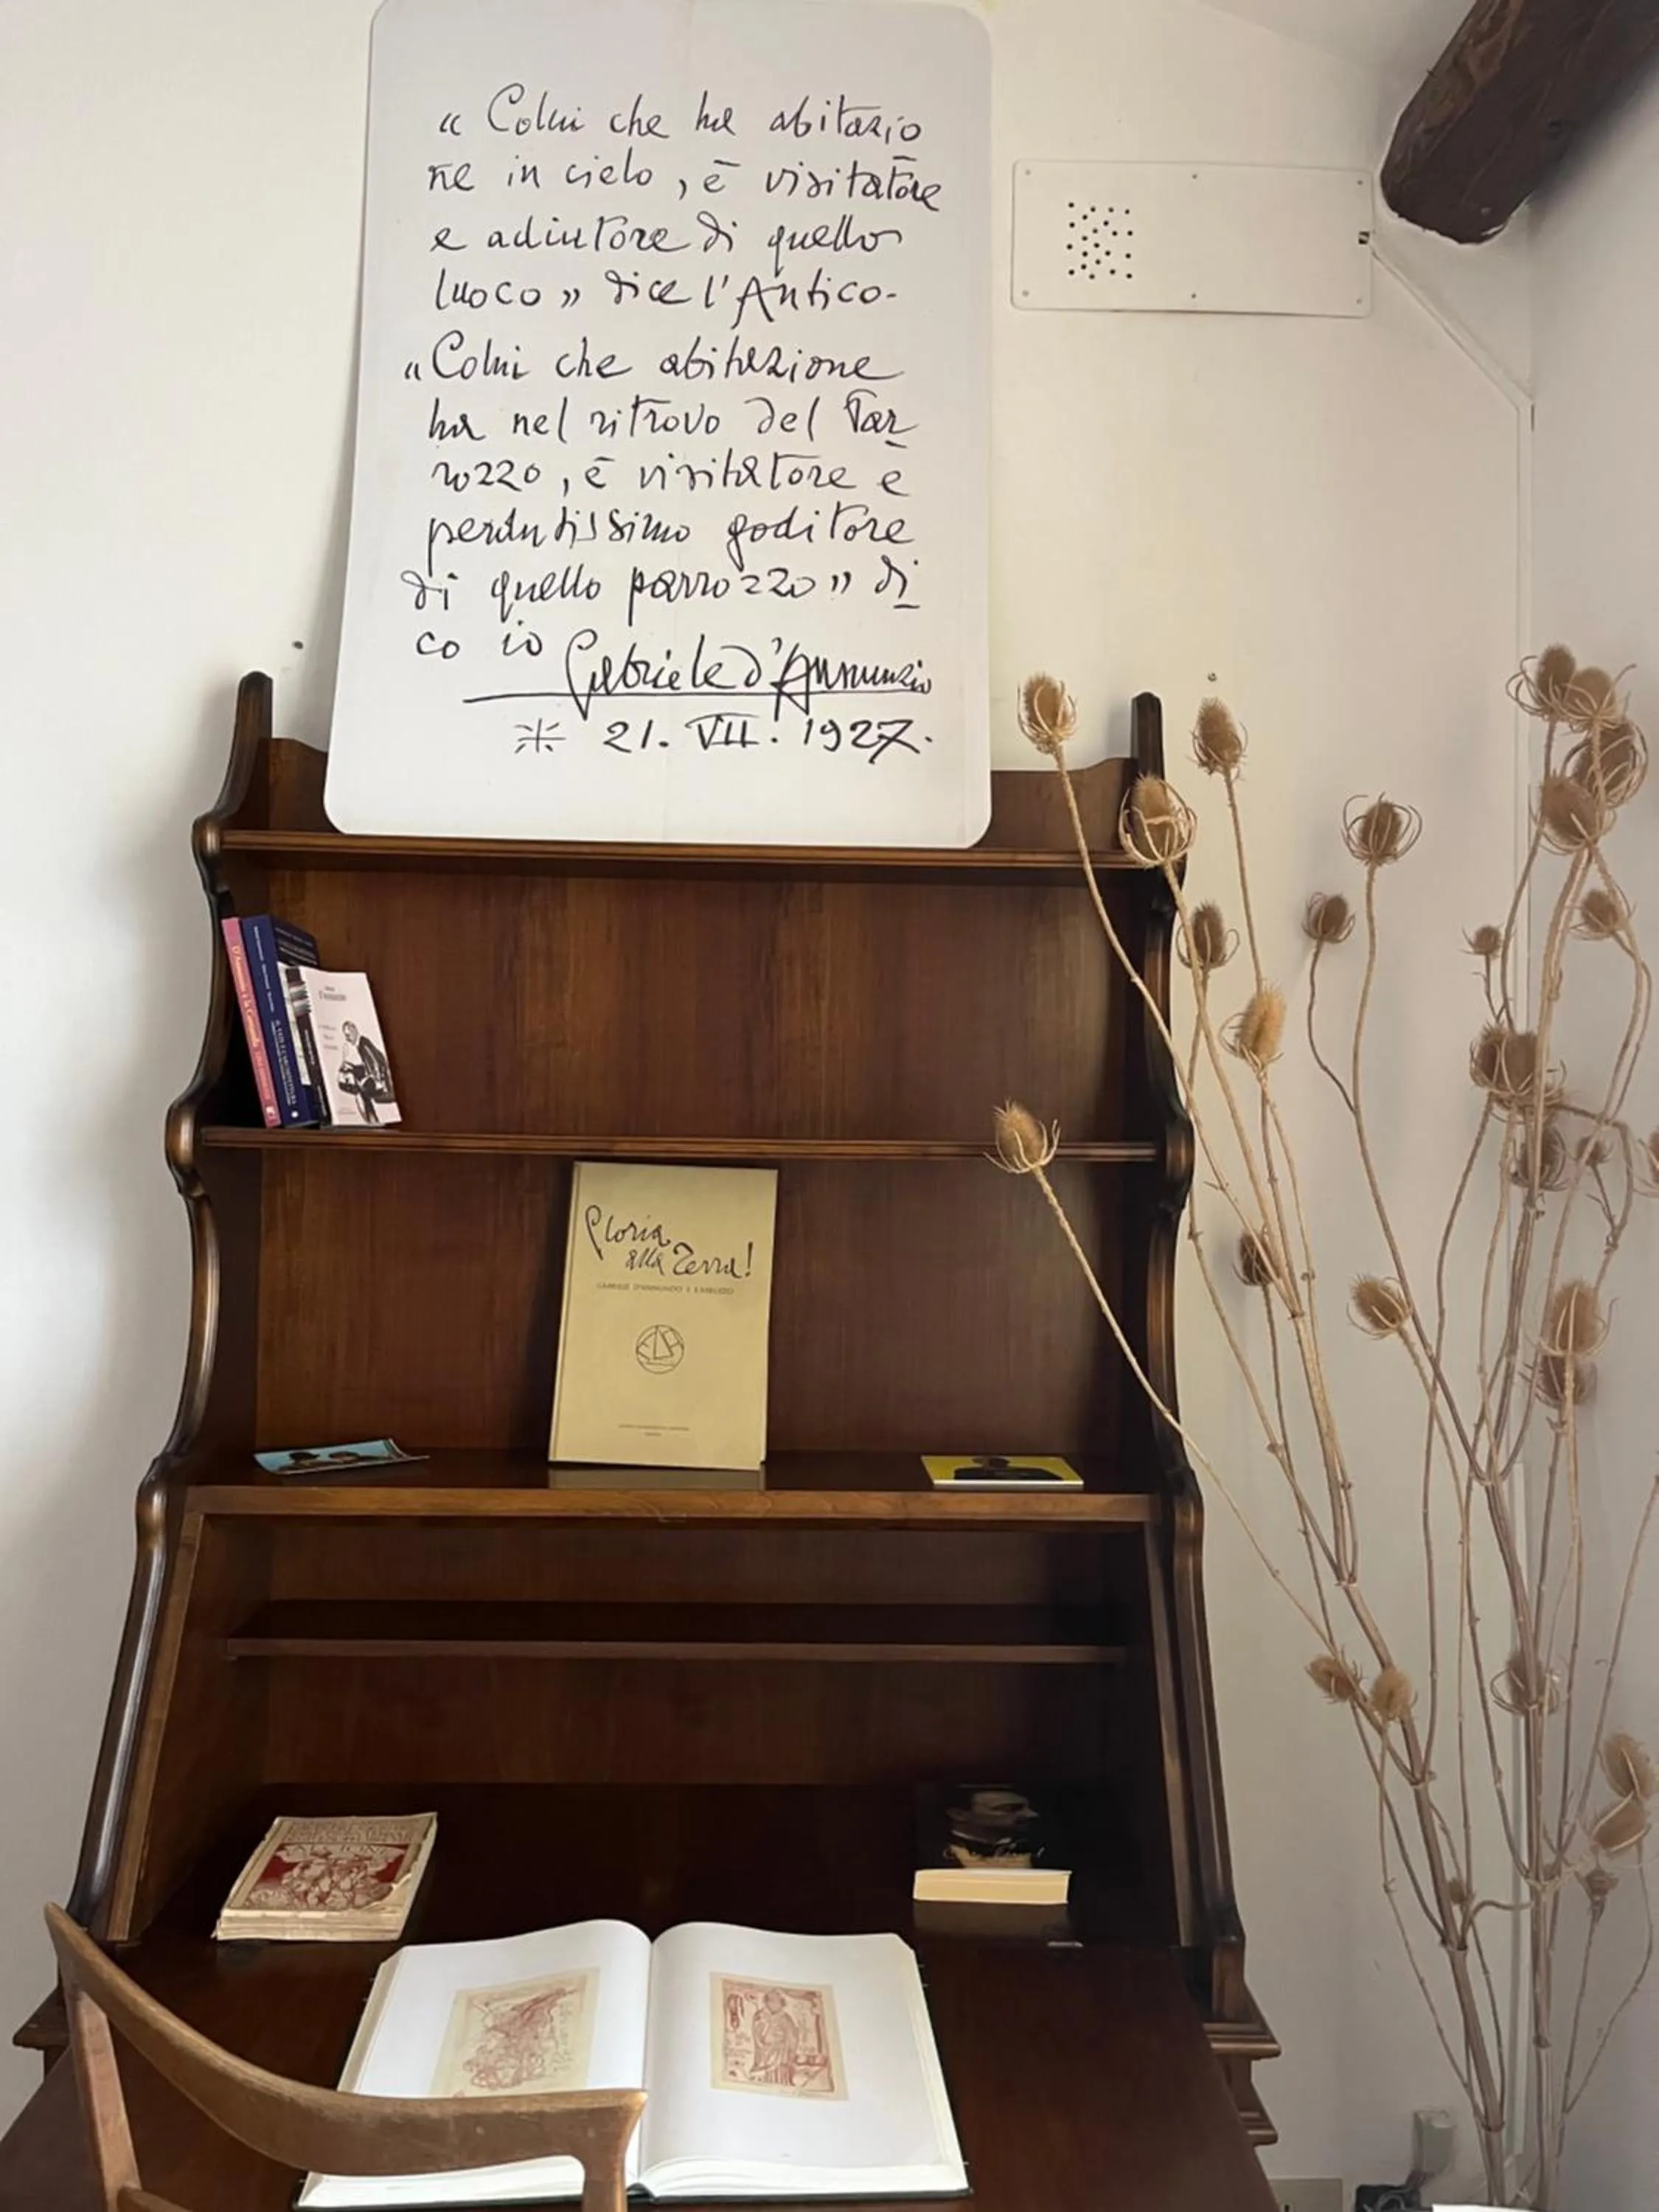 « Colui che ha abitazio
ne in cielo, è visitatore
e adiutore di quello
luoco » dice l'Antico-
« Colui che abitazione
ha nel ritrovo del Par
rozzo, è visitatore e
perdutissimo goditore
di quello parrozzo » di
co io Gabriele d'Annunzio
* 21. VII. 1927.
Gloria
alla Terra!
GABRIELE D'ANNUNZIO E L'ABRUZZO